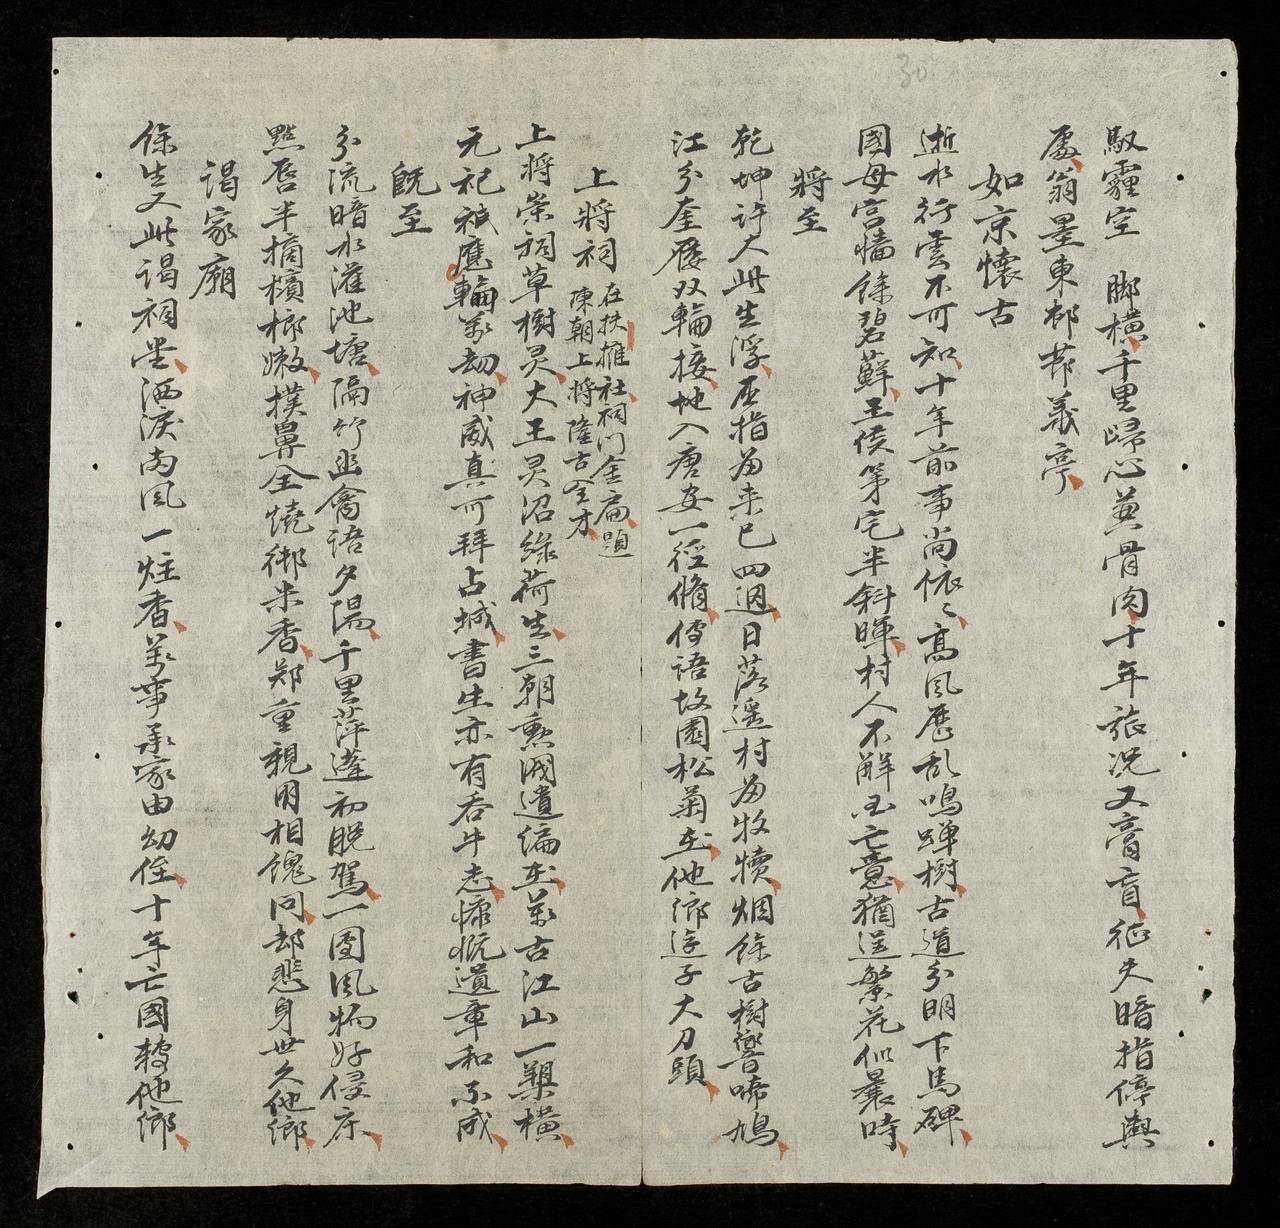 30
馭霾空 脚橫千里歸心兼骨肉十年旅况又膏肓征夫暗指停輿
處翁墨東邨葬義亭
如京懷古
逝水行雲不可知十年前事尚依〻高風歷乱鳴蟬樹古道分明下馬碑
國母宮墻餘碧蘚王侯第宅半斜暉村人不解亡意猶送繁花似曩時
將至
乾坤許大此生浮屈指为来已四週日落遥村为牧犢烟餘古樹響啼鳩
江分奎 双輪接地入唐安一徑脩傳語故園松菊在他鄉逆子大刀頭
上將祠 在扶擁社祠门金扁題
陳朝上將隆古全才
上將崇祠草樹灵大王灵沼綠荷生三朝勲閥遺编在萬古江山一槊橫
元祀祗應輪萬劫神威真可拜占城書生亦有吞牛志慷慨遺章和不成
旣至
分流暗水灌池塘隔竹幽禽语夕陽千里萍蓬初脱駕一園風物好侵床
點唇半摘檳榔嫩撲鼻全燒鄉米香郑重親朋相愧问却悲身世久他鄉
謁家廟
餘生又此謁祠堂洒淚南风一炷香萬事承家由幼侄十年亡國轉他鄉